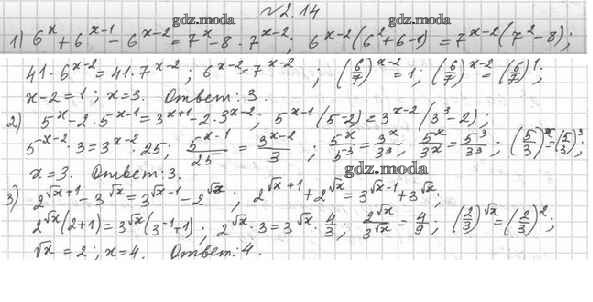 №2.14
gdz.moda gdz.moda
1) 6^x + 6^{x-1} - 6^{x-2} = 7^x - 8 · 7^{x-2}; 6^{x-2}(6^2+6-1) = 7^{x-2}(7^2-8);
41·6^{x-2} = 41·7^{x-2}; 6^{x-2} = 7^{x-2}; (6/7)^{x-2} = 1; (6/7)^{x-2} = (6/7)^1.
x-2=1; x=3. Ответ: 3.
2) 5^x - 2·5^{x-1} = 3^{x+1} - 2·3^{x-2}; 5^{x-1}(5-2) = 3^{x-2}(3^3-2);
5^{x-2}·3 = 3^{x-2}·25; 5^{x-1}/25 = 3^{x-2}/3; 5^x/5^3 = 3^x/3^3; 5^x/3^x = 5^3/3^3; (5/3)^x = (5/3)^3;
gdz.moda
x=3. Ответ: 3.
3) 2^{√x+1} - 3^{√x} = 3^{√x-1} - 2^{√x}; 2^{√x+1} + 2^{√x} = 3^{√x-1} + 3^{√x};
2^{√x}(2+1) = 3^{√x}(3^{-1}+1); 2^{√x}·3 = 3^{√x}·4/3; 2^{√x}/3^{√x} = 4/9; (2/3)^{√x} = (2/3)^2;
√x = 2; x=4. Ответ: 4.
gdz.moda